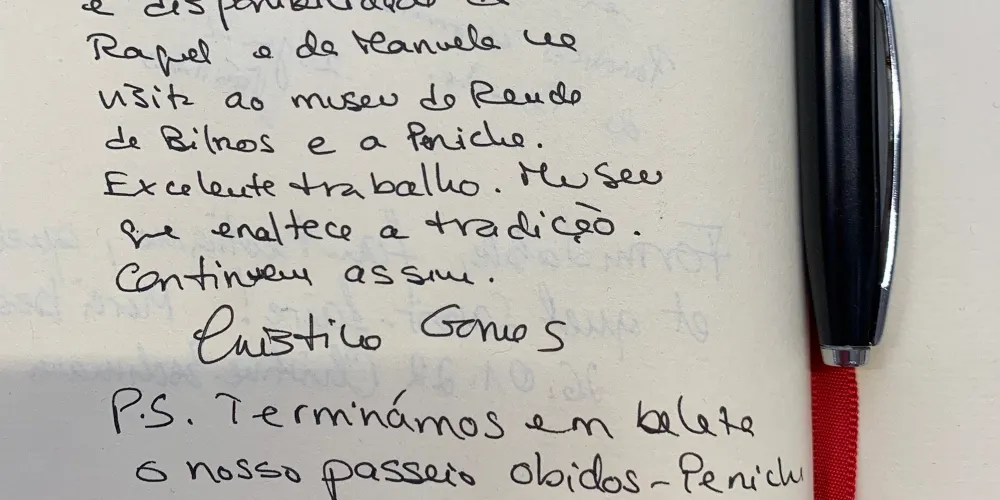 e disponibilização da
Raquel e da Manuela na
visita ao museu de Renda
de Bilros e a Peniche.
Excelente trabalho. Museu
que enaltece a tradição.
Continuem assim.
Gomes
P.S. Terminámos em beleza
o nosso passeio obidos - Peniche